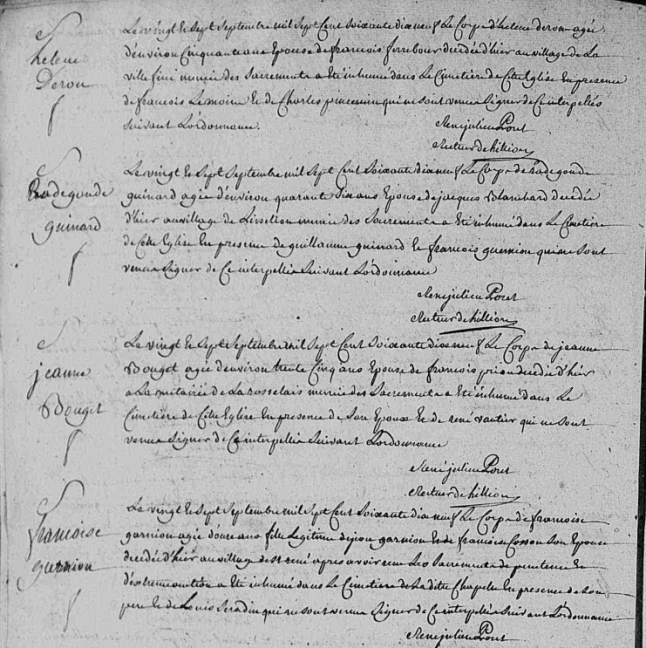 helene
Derou
Le vingt et Sept Septembre mil Sept Cent Soixante dix neuf Le Corps d'helene derou agée
d'environ Cinquante ans Epouse de francois ferrebour decedée d'hier au village de La
ville munie des Sacrements a Eté inhumé dans Le Cimetiere de Cette Eglise En presence
de francois Lemoine Et de Charles qui ne sont venus Signer de Ce interpellés
suivant L'ordonnance.
Rene julien Pouet
Recteur de hillion
Radegonde
guinard
Le vingt et Sept Septembre mil Sept Cent Soixante dix neuf Le Corps de Radegonde
guinard agée d'environ quarante dix ans Epouse de jacques Blanchard decedée
d'hier au village de munie des Sacrements a Eté inhumé dans Le Cimetiere
de Cette Eglise En presence de guillaume guinard Et francois guernion qui ne sont
venus Signer de Ce interpellés Suivant L'ordonnance
Rene julien Pouet
Recteur de hillion
jeanne
Bouget
Le vingt et Sept Septembre mil Sept Cent Soixante dix neuf Le Corps de jeanne
Bouget agée d'environ trente Cinq ans Epouse de francois decedée d'hier
a La metairie de La munie des Sacrements a Eté inhumé dans Le
Cimetiere de Cette Eglise En presence de Son Epoux Et de rené vautier qui ne sont
venus Signer de Ce interpellés Suivant L'ordonnance
Rene julien Pouet
Recteur de hillion
francoise
guernion
Le vingt et Sept Septembre mil Sept Cent Soixante dix neuf Le Corps de francoise
garnion agée douze ans fille Legitime de jean garnion Et de francoise Cosson Son Epouse
decedée d'hier au village de st rené apres avoir recu Les Sacrements de penitence Et
d'extremonction a Eté inhumé dans Le Cimetiere de La ditte Chapelle En presence de Son
pere Et de Louis qui ne sont venus Signer de Ce interpellés Suivant L'ordonnance
Rene julien Pouet